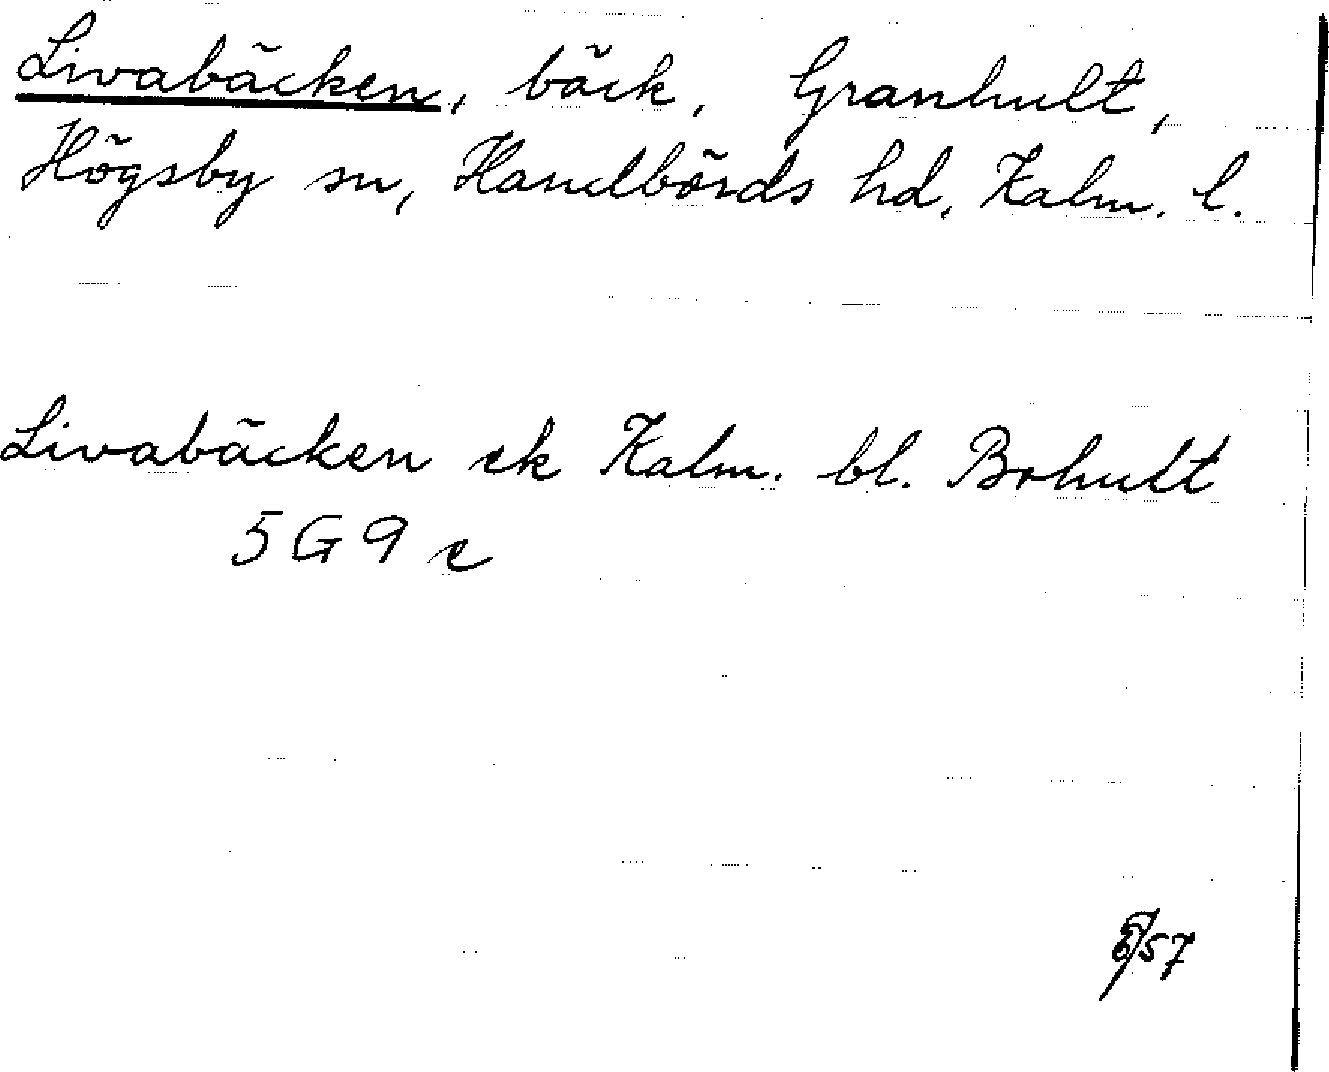 Livabäcken, bäck, Granhult,
Högsby sn, Handbörds hd, Kalm. l.
Livabäcken ek Kalm. bl. Bohult
5G9e